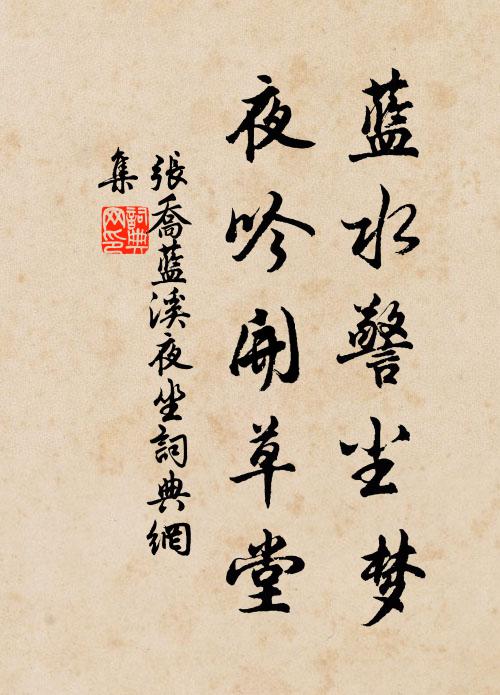 蓝水警尘梦
夜吟開草堂
張喬蓝溪夜坐詞典網
集
詞典
网印